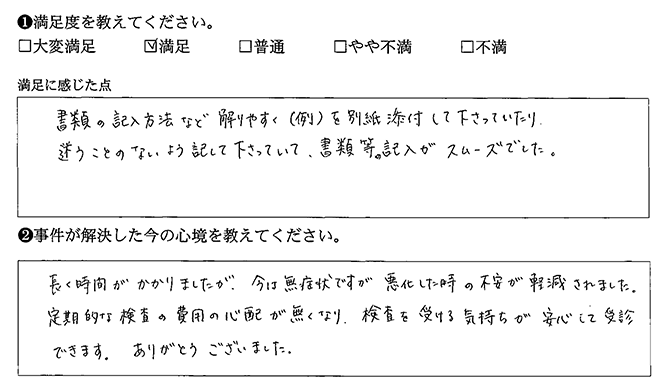 ❶満足度を教えてください。
□大変満足 ☑満足 □普通 □やや不満 □不満
満足に感じた点
書類の記入方法など解りやすく(例)を別紙添付して下さっていたり、
迷うことのないよう記して下さっていて、書類等の記入がスムーズでした。
❷事件が解決した今の心境を教えてください。
長く時間がかかりましたが、今は無症状ですが悪化した時の不安が軽減されました。
定期的な検査の費用の心配が無くなり、検査を受ける気持ちが安心して受診
できます。ありがとうございました。